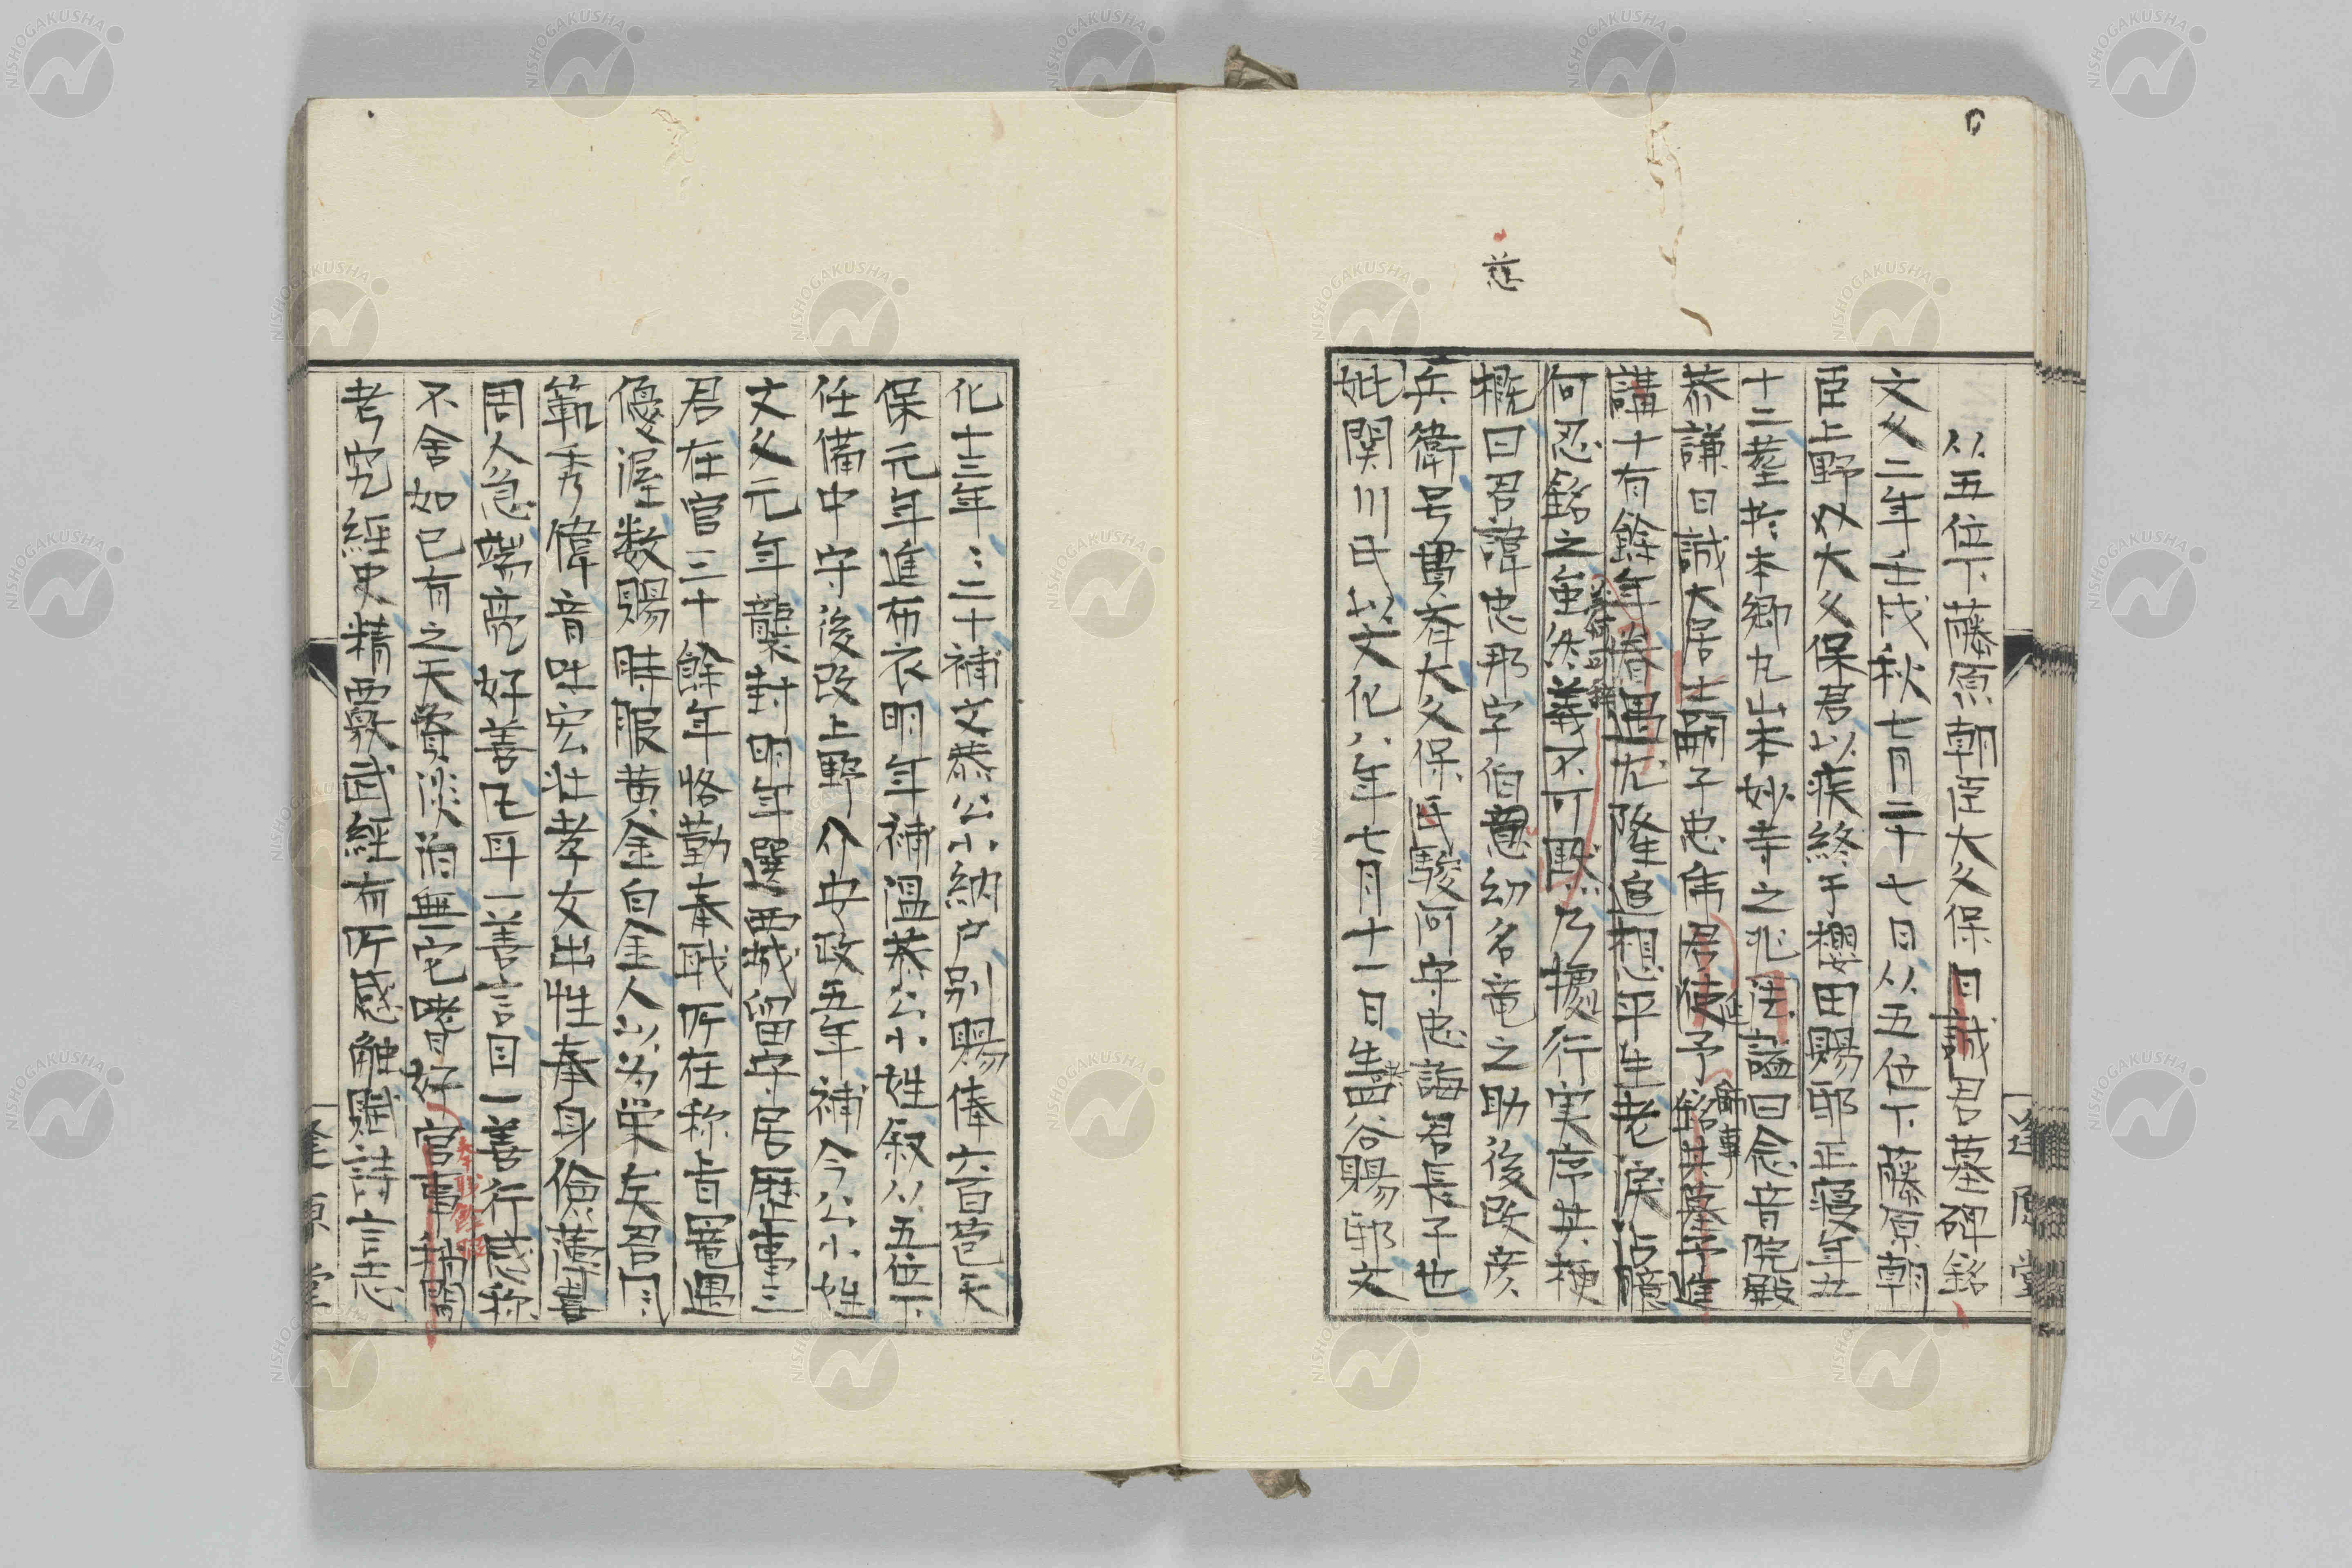 从五位下藤原朝臣大久保日誠君墓碑銘
文久二年壬戌秋七月二十七日从五位下藤原朝
臣上野介大久保君以疾終于櫻田賜邸正寝年五
十二葬於本郷丸山本妙寺之兆塋謚曰念音院殿
恭謙日誠大居士嗣子忠隼君使予銘其墓予進
講十有餘年眷遇尤隆追想平生老涙沾臆
何忍銘之虽然義不可默乃據行実序其梗
概曰君諱忠邦字伯 幼名竜之助後改彦
兵衛号貫斎大久保氏駿河守忠誨君長子也
妣関川氏以文化八年七月十一日生 谷賜邸文
化十三年年二十補文恭公小納戸別賜俸六百苞天
保元年進布衣明年補温恭公小姓叙从五位下
任備中守後改上野介安政五年補今公小姓
文久元年襲封明年選西城留守居歴事三
君在官三十餘年恪勤奉職所在称旨寵遇
優渥数賜時服黄金白金人以為栄矣君同
範秀偉音吐宏壮孝友出性奉身倹薄喜
周人急端亮好善凡耳一善言目一善行感称
不舍如己有之天資淡泊無它嗜好官事
奉職餘暇
考究經史精覈武經有所感触賦詩言志
逢原堂
逢原堂